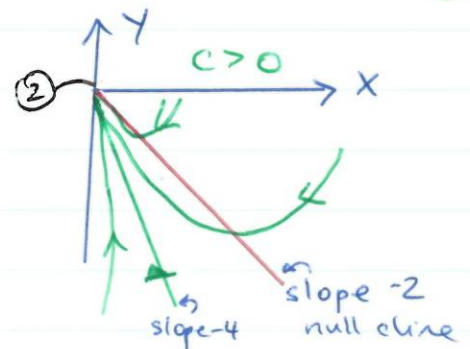 Y
C > 0
②
X
slope -2
null cline
slope-4